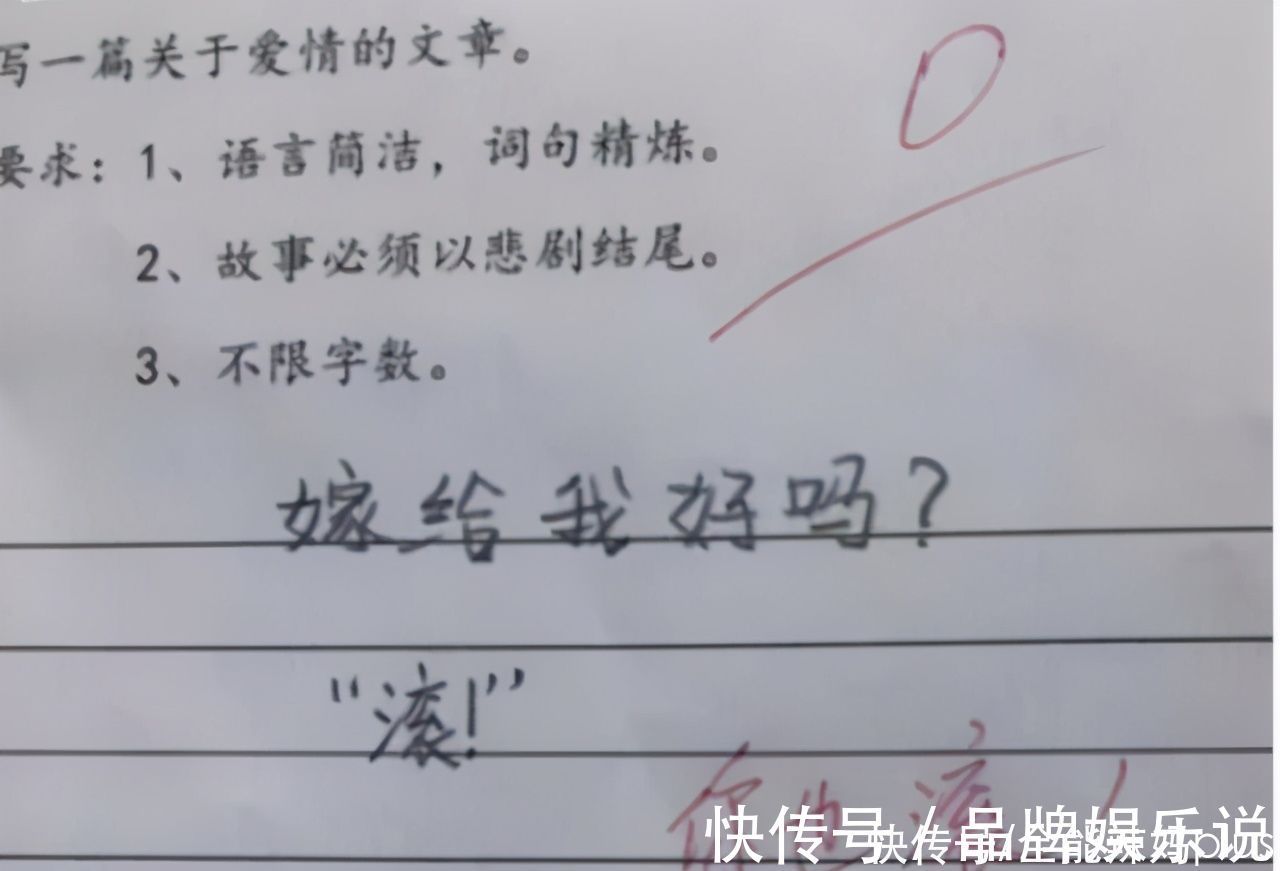 写一篇关于爱情的文章。
0
要求：1、语言简洁，词句精炼。
2、故事必须以悲剧结尾。
3、不限字数。
嫁给我好吗？
“滚！”
你也滚！
快传号/品牌娱乐说
快传号/全能辣妈